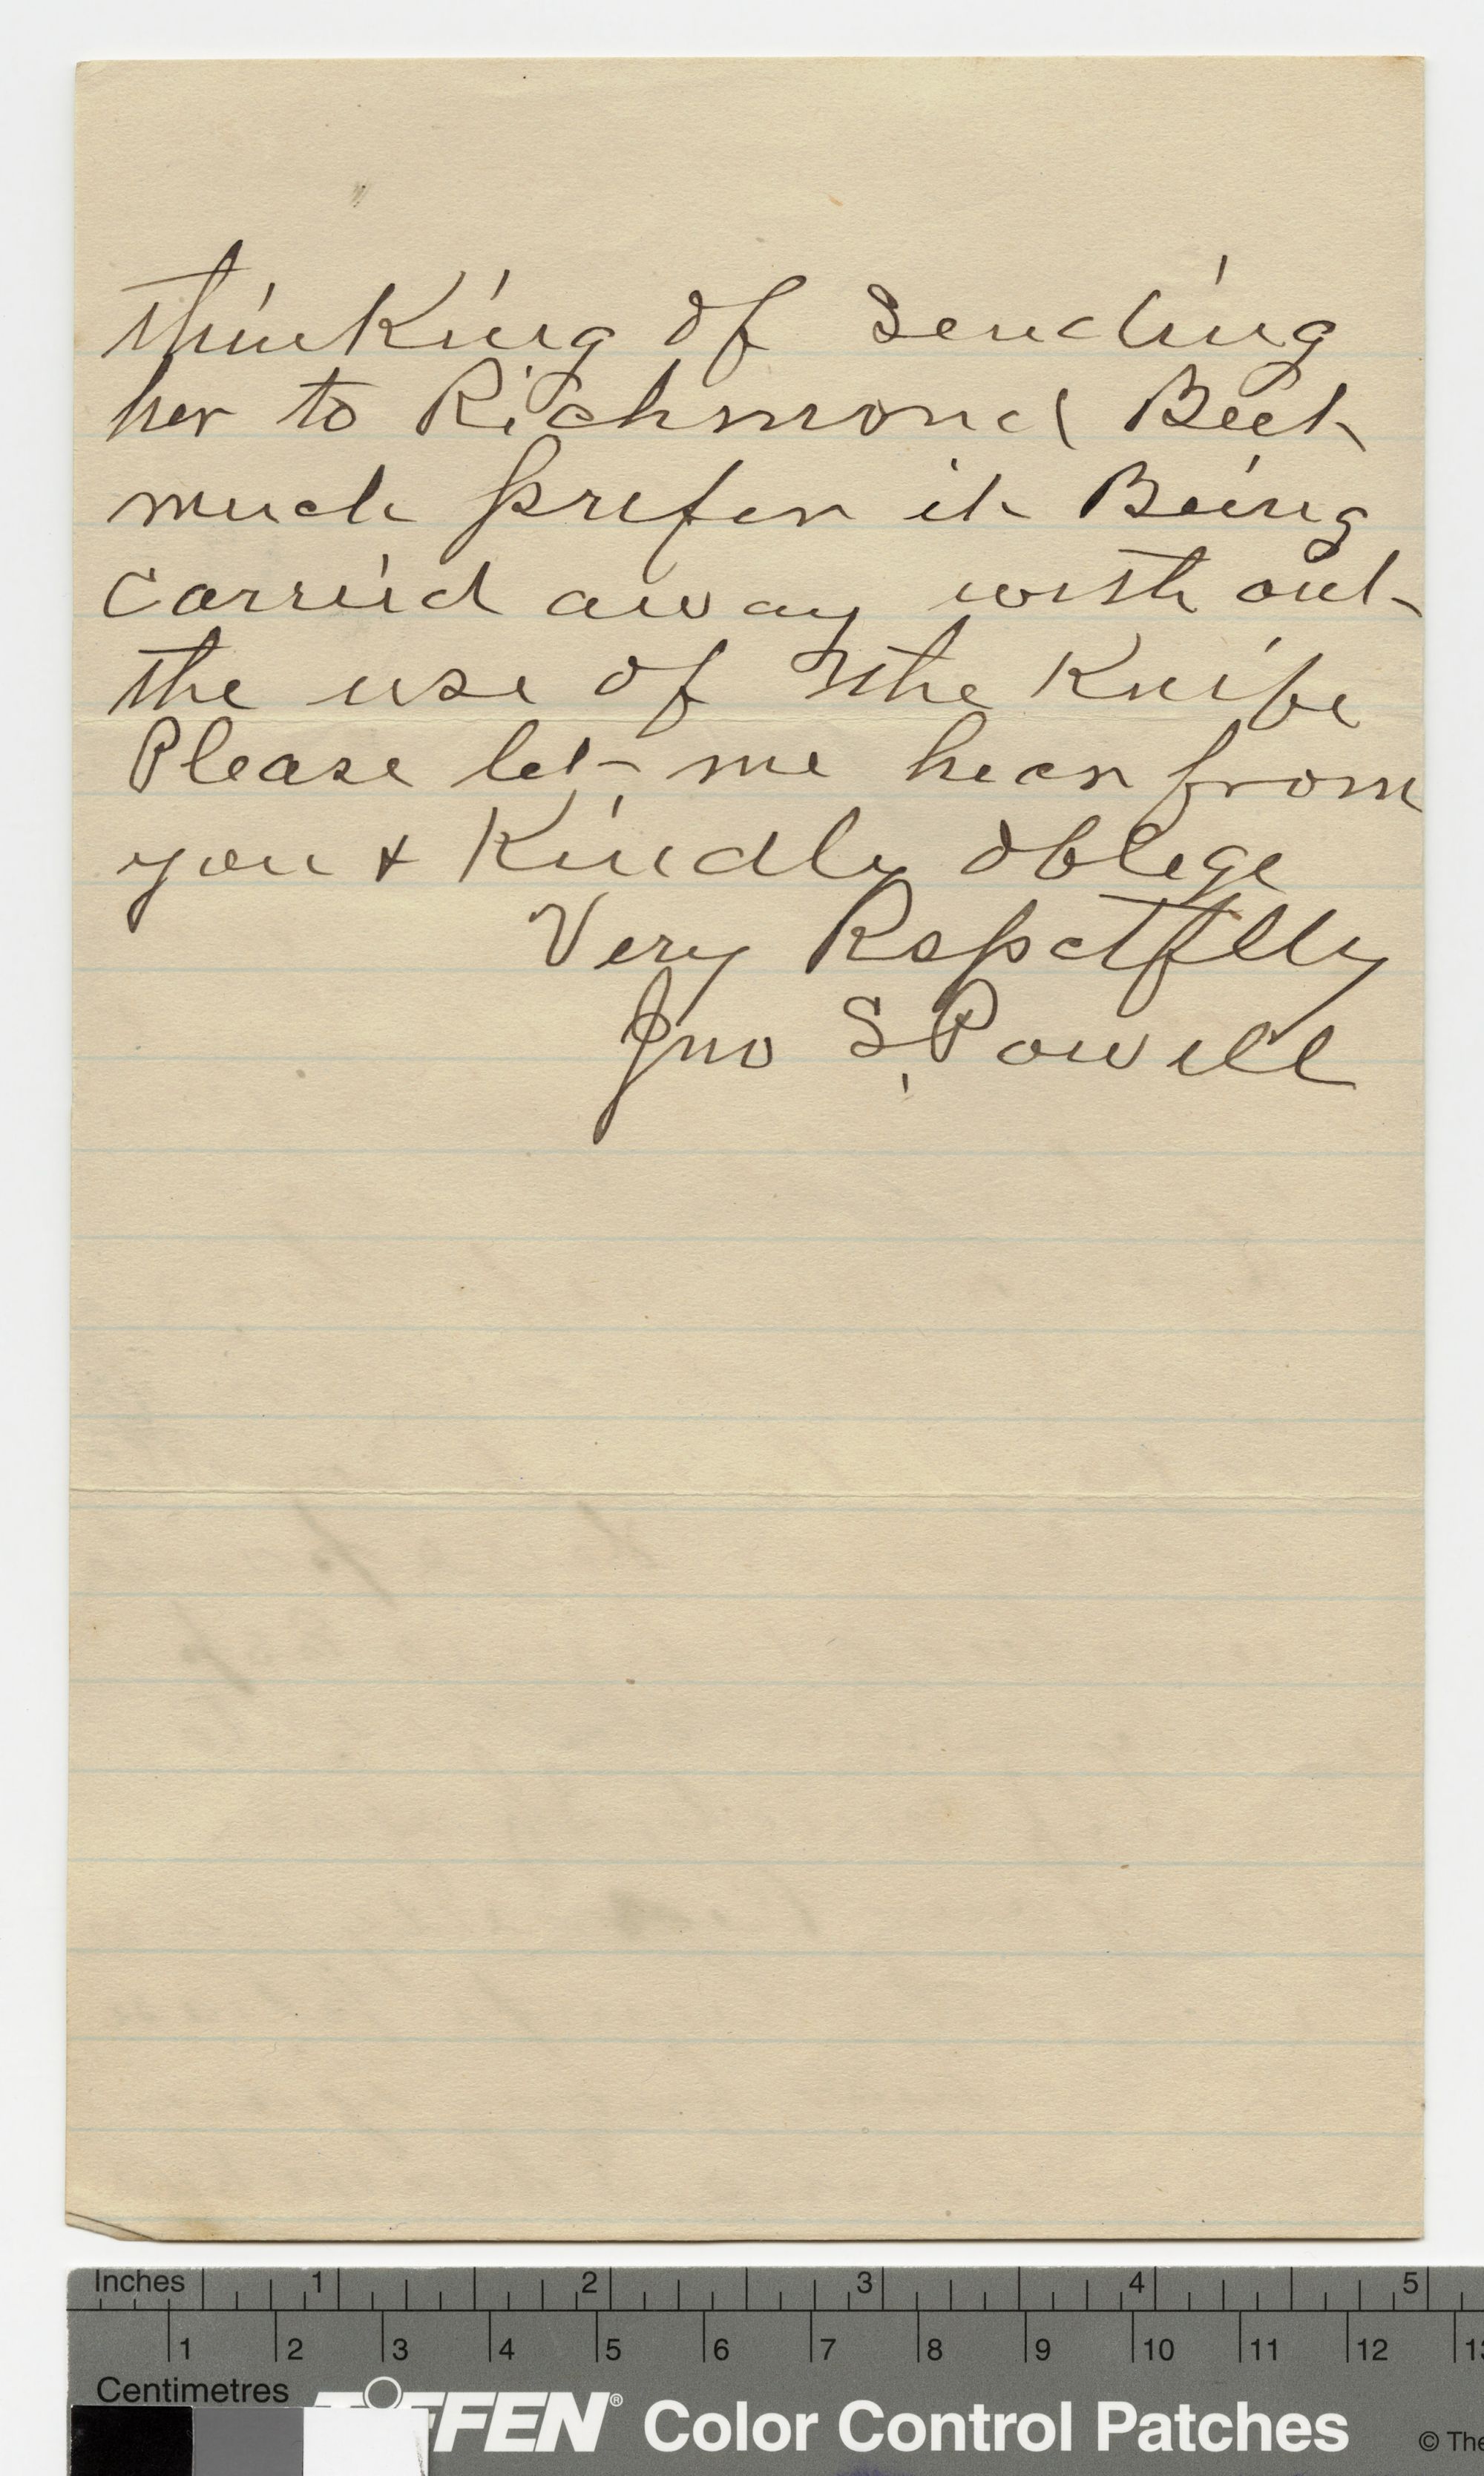 thinking of Sending
her to Richmond But
much prefer it Being
Carried away with out
the use of the Knife
Please let me hear from
you & Kindly oblege
Very Rspctflly
Jno S. Powell
Inches 1 2 3 4 5
1 2 3 4 5 6 7 8 9 10 11 12 13
Centimetres
TIFFEN® Color Control Patches © The